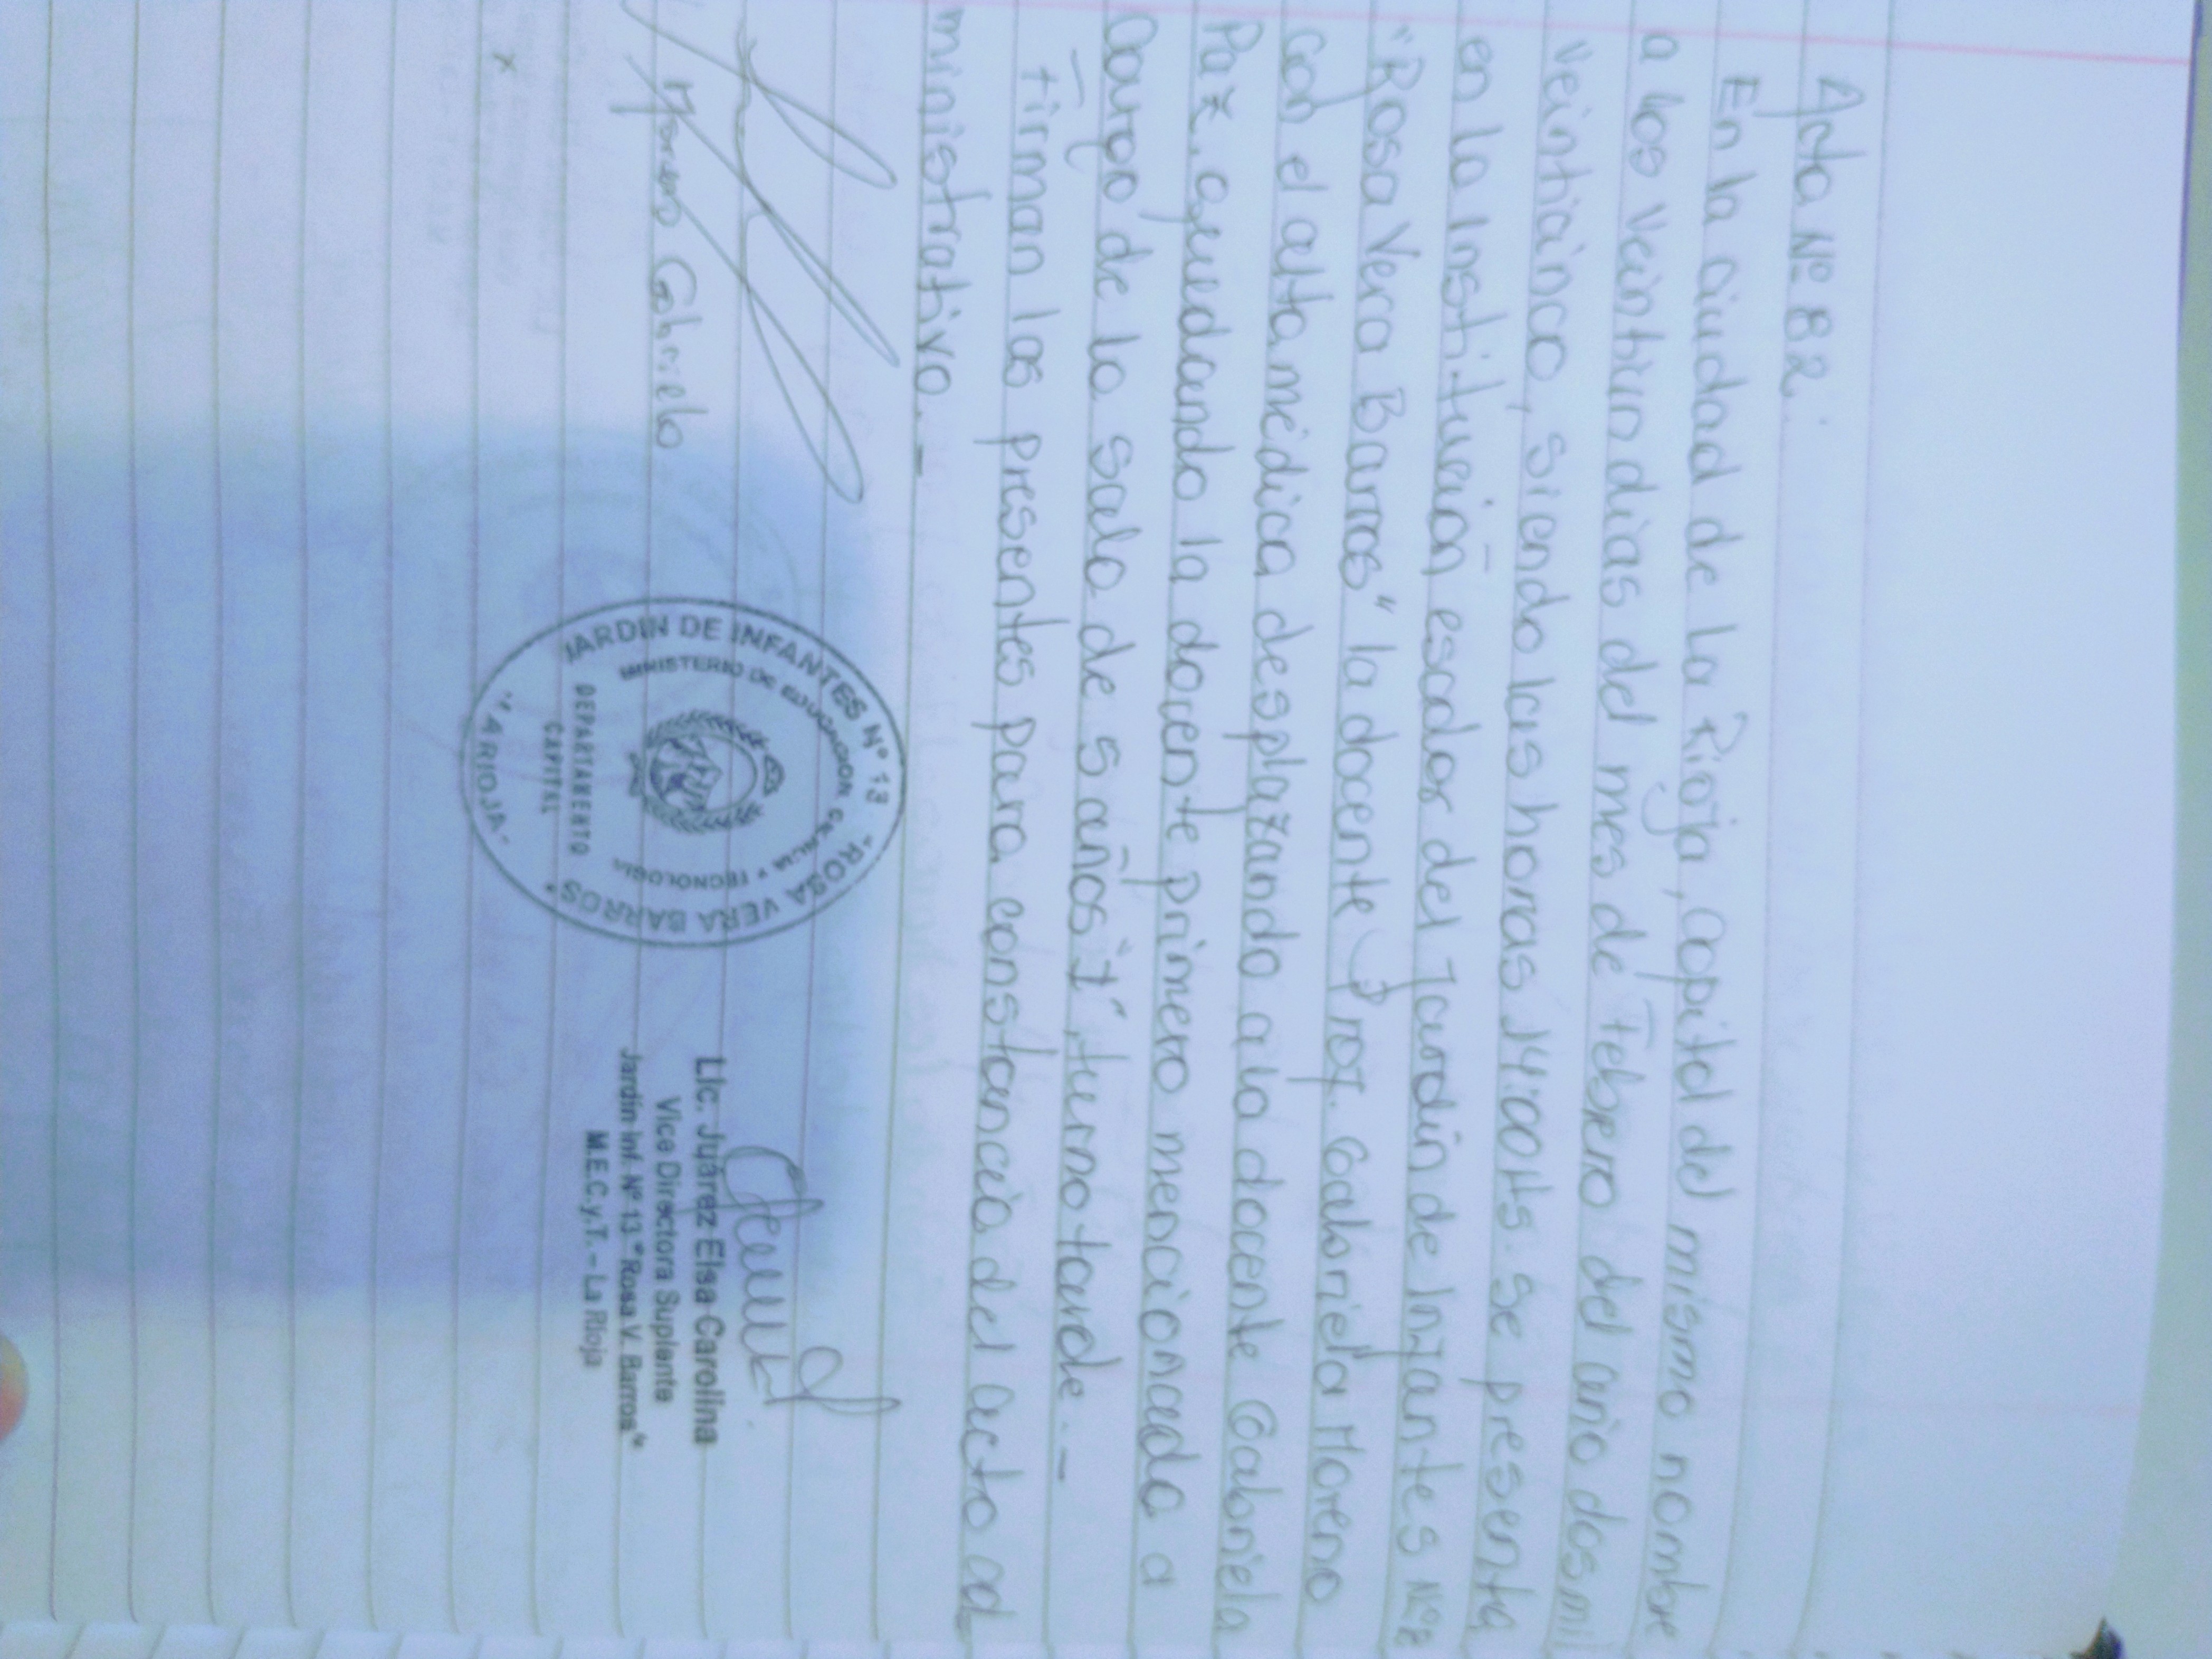 Acta Nº 82:
En la ciudad de La Rioja, Capital del mismo nombre
a los veintiun dias del mes de Febrero del año dos mil
veinticinco, siendo las horas 14:00Hs. se presenta
en la Institución escolar del Jardín de Infantes Nº
"Rosa Vera Barros" la docente Prof. Gabriela Moreno
con el alta médica desplazando a la docente Gabriela
Paz, quedando la docente primero mencionada a
cargo de la sala de 5 años "I", turno tarde.-
Firman los presentes para constancia del acto ad_
ministrativo.-
Moreno Gabriela
JARDIN DE INFANTES Nº 13 "ROSA VERA BARROS"
MINISTERIO DE EDUCACION CIENCIA Y TECNOLOGIA
DEPARTAMENTO
CAPITAL
"LA RIOJA"
Lic. Juárez Elsa Carolina
Vice Directora Suplente
Jardín Inf. Nº 13 "Rosa V. Barros"
M.E.C.y.T. - La Rioja